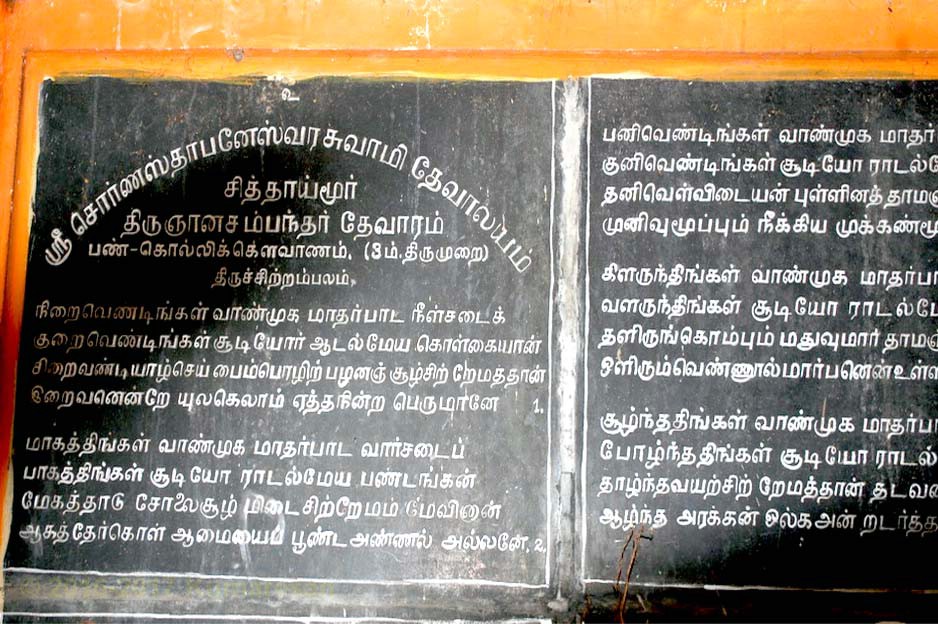 உ
ஸ்ரீ சொர்ணஸ்தாபனேஸ்வரசுவாமி தேவாலயம்
சித்தாய்மூர்
திருஞானசம்பந்தர் தேவாரம்
பண்-கொல்லிக்கௌவாணம், (3ம்.திருமுறை)
திருச்சிற்றம்பலம்,
நிறைவெண்டிங்கள் வாண்முக மாதர்பாட நீள்சடைக்
குறைவெண்டிங்கள் சூடியோர் ஆடல்மேய கொள்கையான்
சிறைவண்டியாழ்செய் பைம்பொழிற் பழனஞ் சூழ்சிற் றேமத்தான்
இறைவனென்றே யுலகெலாம் ஏத்தநின்ற பெருமானே 1.
மாகத்திங்கள் வாண்முக மாதர்பாட வார்சடைப்
பாகத்திங்கள் சூடியோ ராடல்மேய பண்டங்கன்
மேகத்தாடு சோலைசூழ் மிடைசிற்றேமம் மேவினான்
ஆகத்தேர்கொள் ஆமையைப் பூண்ட அண்ணல் அல்லனே. 2.
பனிவெண்டிங்கள் வாண்முக மாதர்
குனிவெண்டிங்கள் சூடியோ ராடல்மே
தனிவெள்விடையன் புள்ளினத்தாமஞ
முனிவுமூப்பும் நீக்கிய முக்கண்மூ
கிளருந்திங்கள் வாண்முக மாதர்பா
வளருந்திங்கள் சூடியோ ராடல்மே
தளிருங்கொம்பும் மதுவுமார் தாமஞ
ஒளிரும்வெண்ணூல்மார்பனென்உள்ளி
சூழ்ந்ததிங்கள் வாண்முக மாதர்பா
போழ்ந்ததிங்கள் சூடியோ ராடல்
தாழ்ந்தவயற்சிற் றேமத்தான் தடவ
ஆழ்ந்த அரக்கன் ஒல்கஅன் றடர்த்த